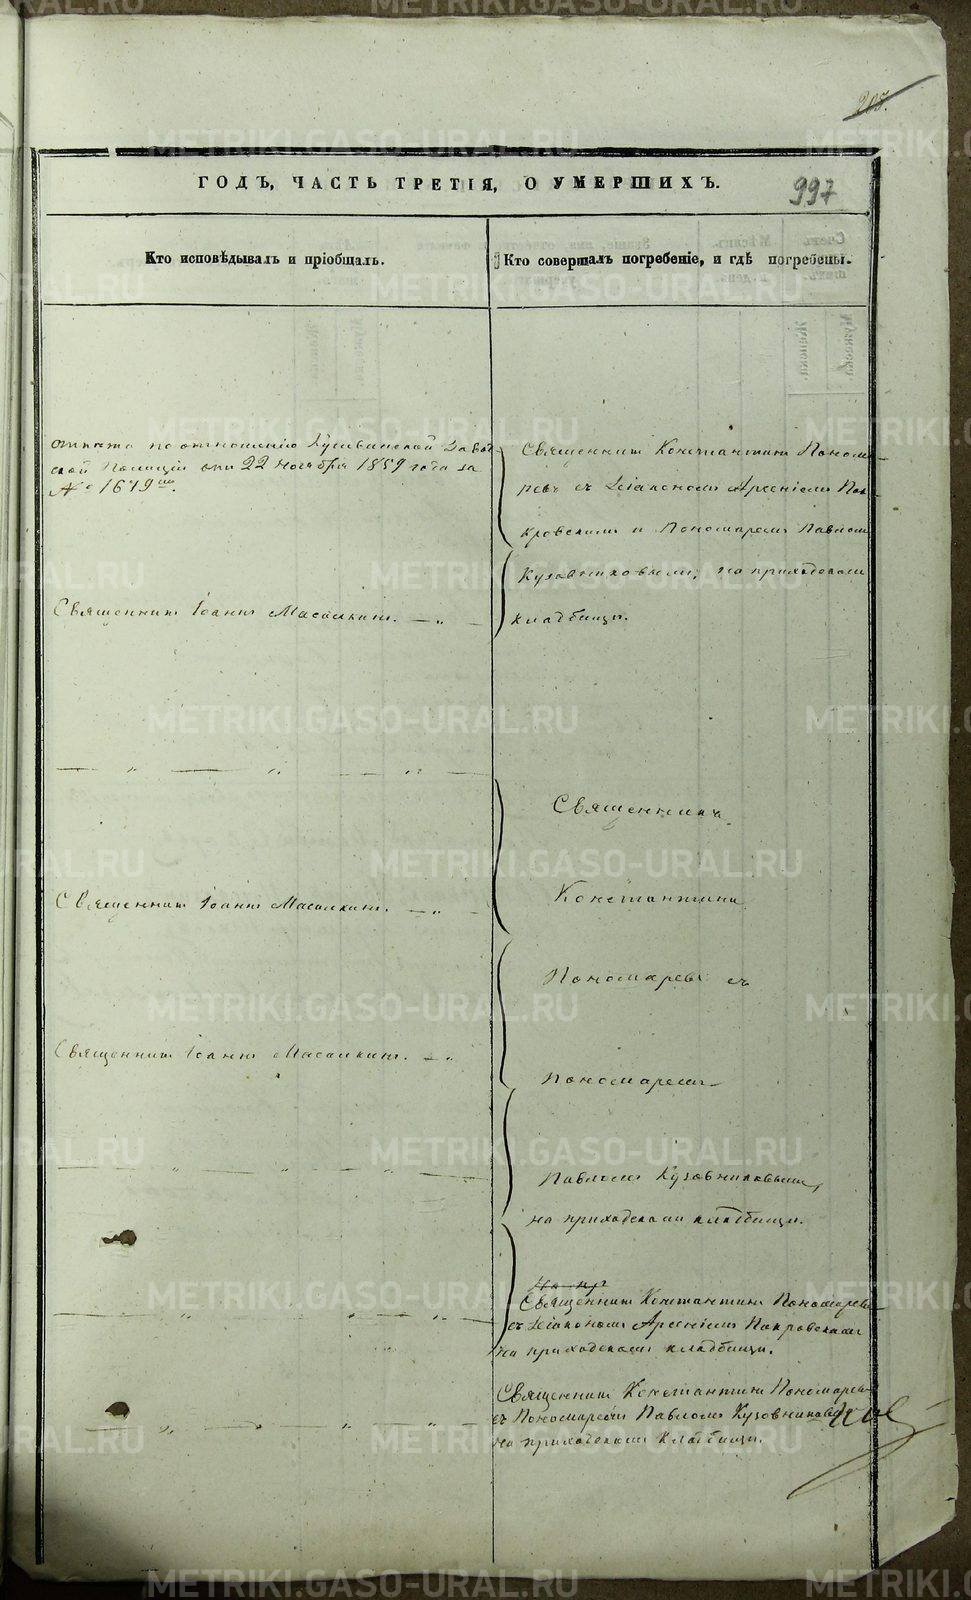 205.
ГОДЪ, ЧАСТЬ ТРЕТІЯ, О УМЕРШИХЪ.
997
Кто исповѣдывалъ и пріобщалъ.
Кто совершалъ погребеніе, и гдѣ погребены.
отпѣто по отношенію Кушвинской Завод
ской Полиціи отъ 22 ноября 1859 года за
№ 1679
Священникъ Іоаннъ Масалкинъ. — „ —
— „ — „ — „ —
Священникъ Іоаннъ Масалкинъ. — „ —
Священникъ Іоаннъ Масалкинъ. — „
— „ — „ — „ —
— „ — „ — „ —
— „ — „ — „ —
Священникъ Константинъ Понома
ревъ съ Діакономъ Арсеніемъ По
кровскимъ и Пономаремъ Павломъ
Кузовниковымъ, на приходскомъ
кладбищѣ.
Священникъ
Константинъ
Пономаревъ съ
Пономаремъ
Павломъ Кузовниковымъ,
на приходскомъ кладбищѣ.
На пр
Священникъ Константинъ Пономаревъ
съ Діакономъ Арсеніемъ Покровскимъ
на приходскомъ кладбищѣ.
Священникъ Константинъ Пономаревъ
съ Пономаремъ Павломъ Кузовниковымъ
на приходскомъ кладбищѣ.
METRIKI.GASO-URAL.RU